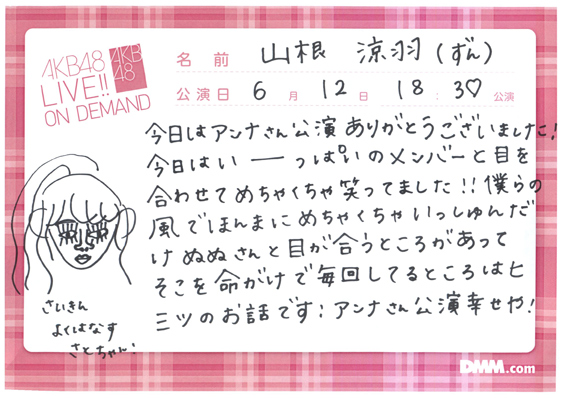 AKB48
LIVE!!
ON DEMAND
AKB
48
名前 山根 涼羽(ずん)
公演日 6月 12日 18:30公演
今日はアンナさん公演ありがとうございました!
今日はい――っぱいのメンバーと目を
合わせてめちゃくちゃ笑ってました!!僕らの
風でほんまにめちゃくちゃいっしゅんだ
けぬぬさんと目が合うところがあって
そこを命がけで毎回してるところはヒ
ミツのお話です!アンナさん公演幸せや!
さいきん
よくはなす
さとちゃん!
DMM.com